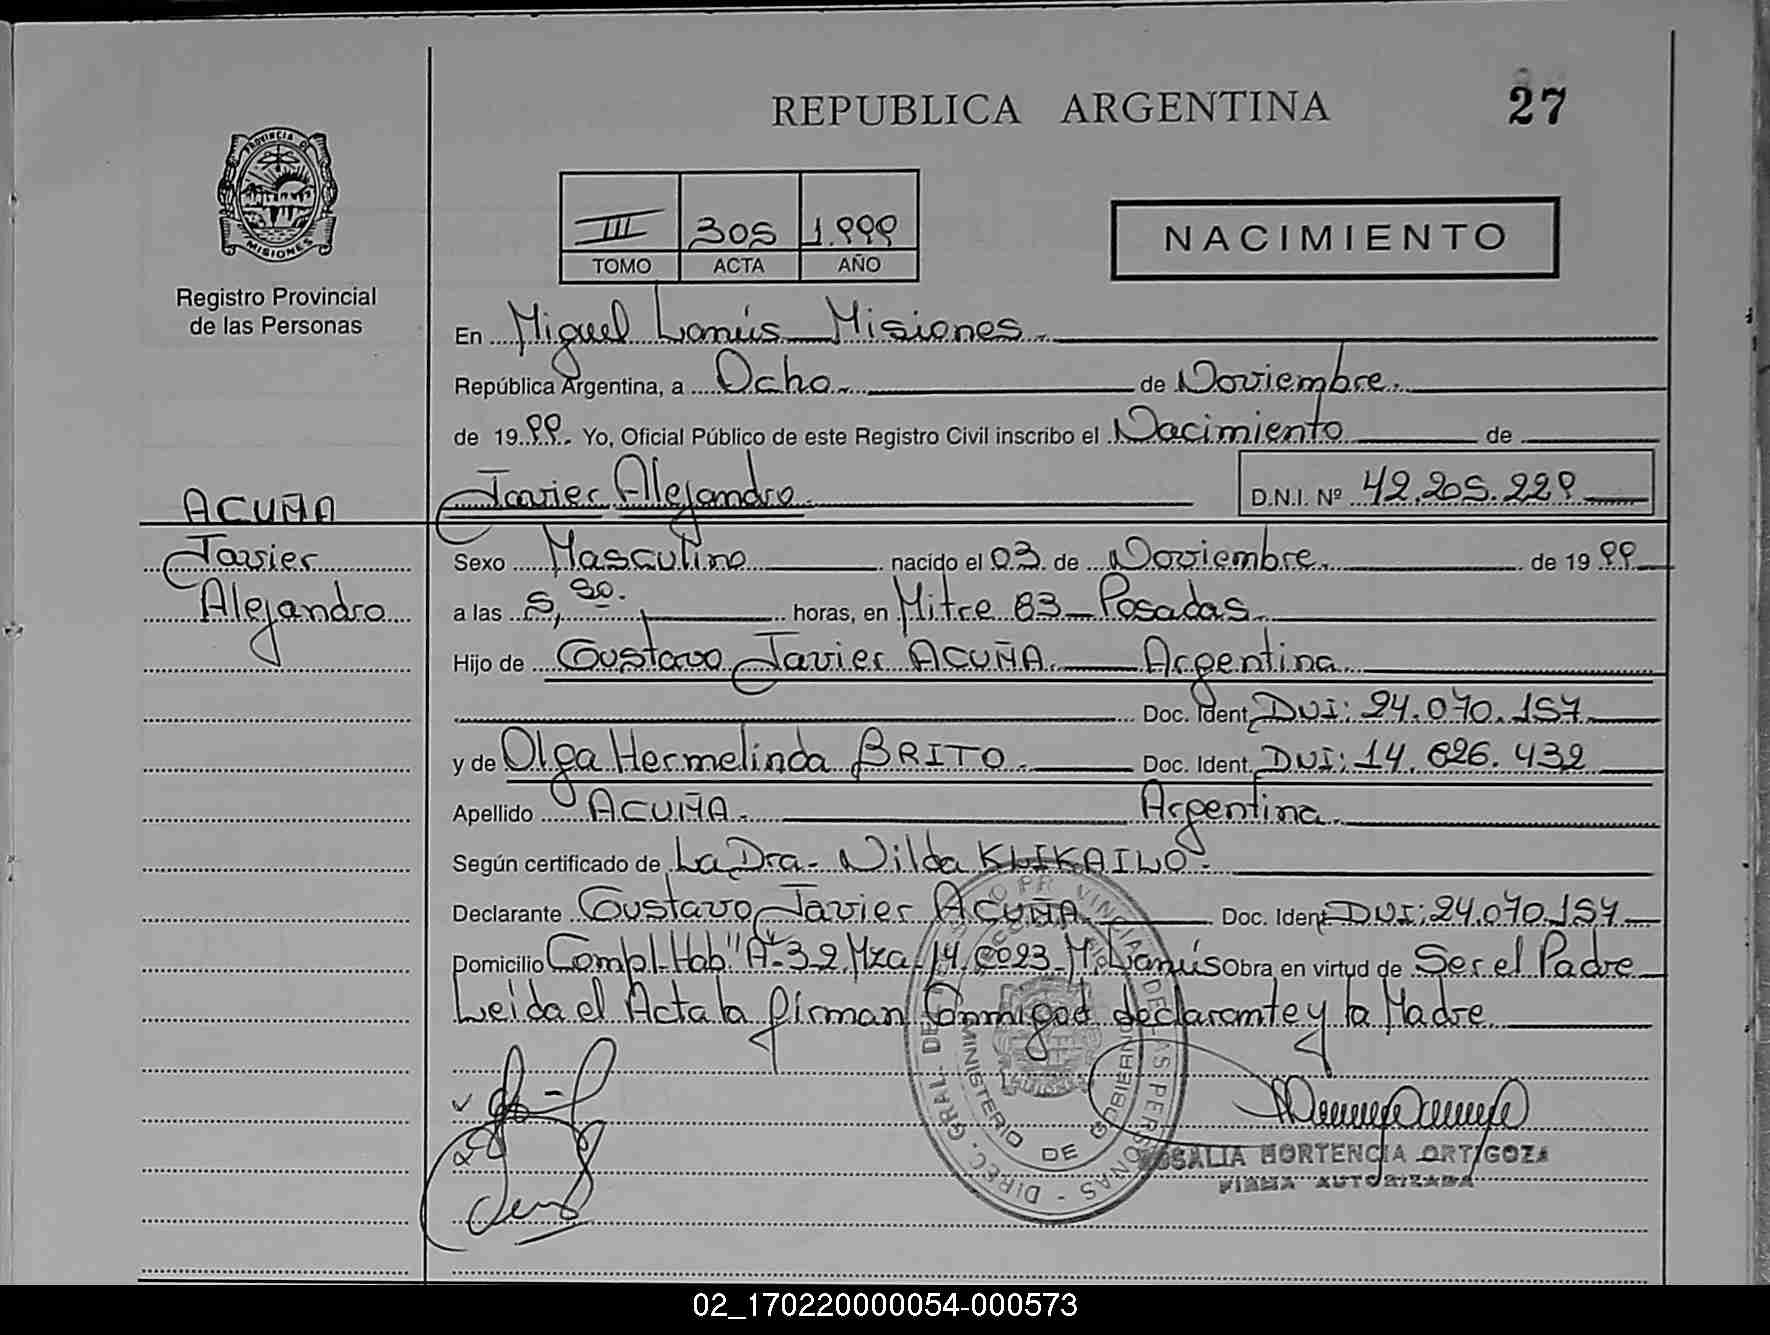 27
REPUBLICA ARGENTINA
PROVINCIA DE
MISIONES
Registro Provincial
de las Personas
III 305 1.999
TOMO ACTA AÑO
NACIMIENTO
En Miguel Lanús Misiones.
República Argentina, a Ocho. de Noviembre.
de 1999. Yo, Oficial Público de este Registro Civil inscribo el Nacimiento de
Javier Alejandro. D.N.I. Nº 42.205.229
ACUÑA
Javier
Alejandro
Sexo Masculino nacido el 03 de Noviembre. de 1999
a las 5,50. horas, en Mitre 83 - Posadas.
Hijo de Gustavo Javier ACUÑA. Argentina
Doc. Ident. DNI: 24.070.157
y de Olga Hermelinda BRITO. Doc. Ident. DNI: 14.626.432
Apellido ACUÑA. Argentina.
Según certificado de La Dra. Nilda KLIKAILO.
Declarante Gustavo Javier ACUÑA. Doc. Ident. DNI: 24.070.157
Domicilio Compl. Hab "A"-32, Mza. 14, C 23 M. Lanús Obra en virtud de Ser el Padre
Leida el Acta la firman Conmigo el declarante y la Madre
DIREC. GRAL. DE PROVINCIAL DE LAS PERSONAS
MINISTERIO DE GOBIERNO
ROSALIA HORTENCIA ORTIGOZA
FIRMA AUTORIZADA
02_170220000054-000573